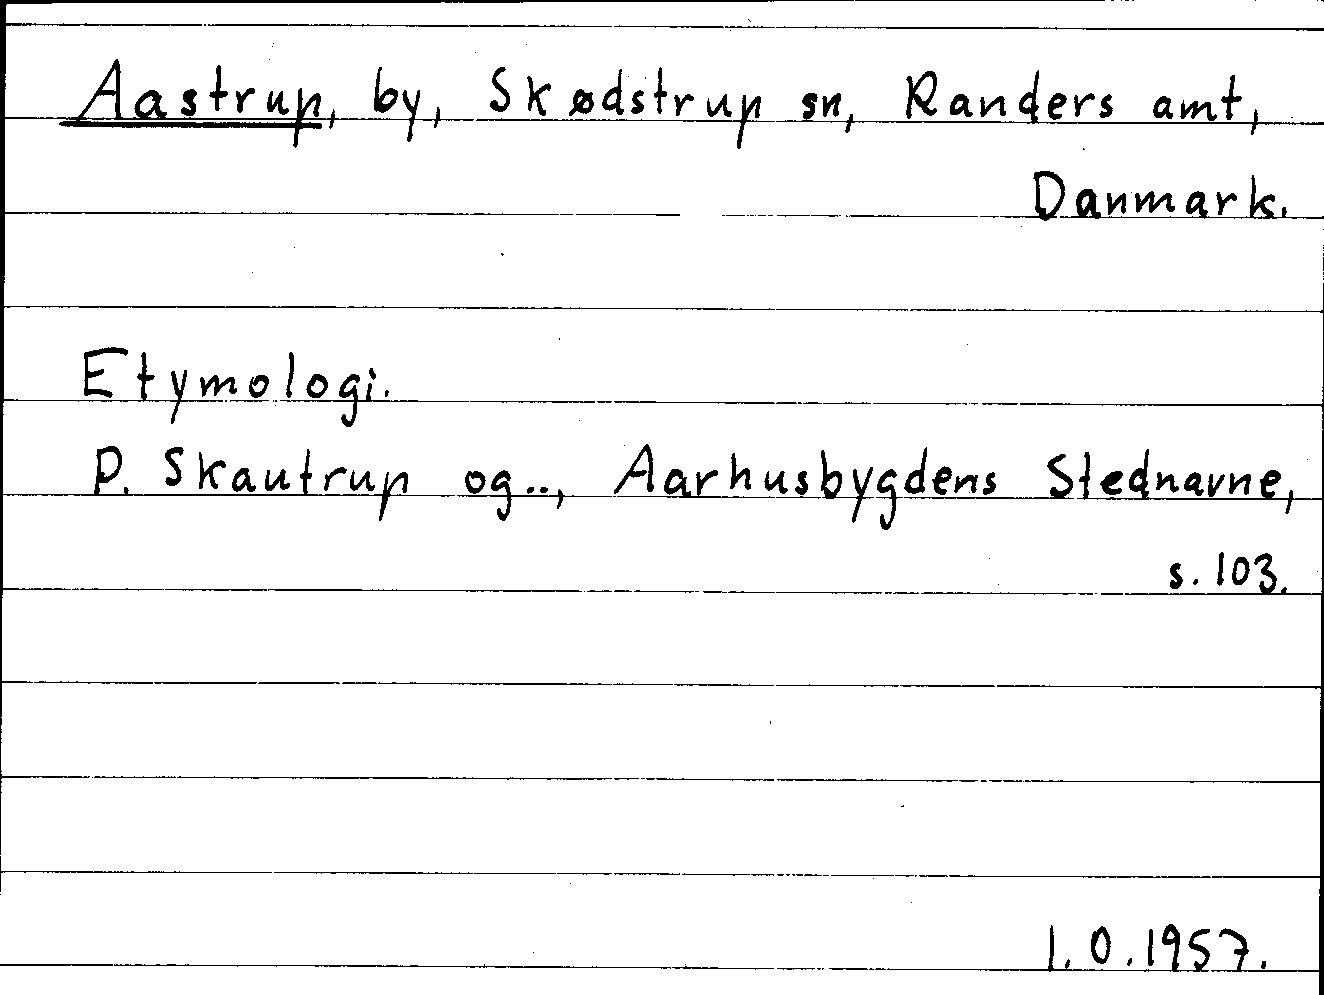 Aastrup, by, Skødstrup sn, Randers amt,
Danmark.
Etymologi.
P. Skautrup og.., Aarhusbygdens Stednavne,
s. 103.
I. O. 1957.